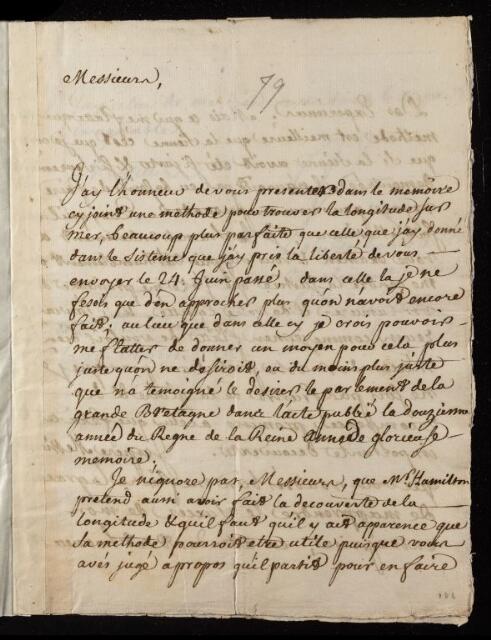 Messieurs,
79
J'ay l'honneur de vous presenter dans le memoire
cy joint une methode pour trouver la longitude sur
mer, beaucoup plus parfaite que celle que j'ay donné
dans le Sistême que j'ay pris la liberté de vous
envoyer le 24. Juin passé, dans celle la je ne
fesois que d'en approcher plus qu'on n'avoit encore
fait; au lieu que dans celle cy je crois pouvoir
me flatter de donner un moyen pour cela plus
juste qu'on ne desiroit, ou du moins plus juste
que n'a temoigné le desirer le parlement de la
grande Bretagne dans l'acte publié la douzieme
année du Regne de la Reine Anne de glorieuse
memoire.
Je n'ignore pas, Messieurs, que Mr. Hamilton
pretend aussi avoir fait la decouverte de la
longitude & qu'il faut qu'il y ait apparence que
sa methode pourroit etre utile puisque vous
avés jugé a propos qu'il partit pour en faire